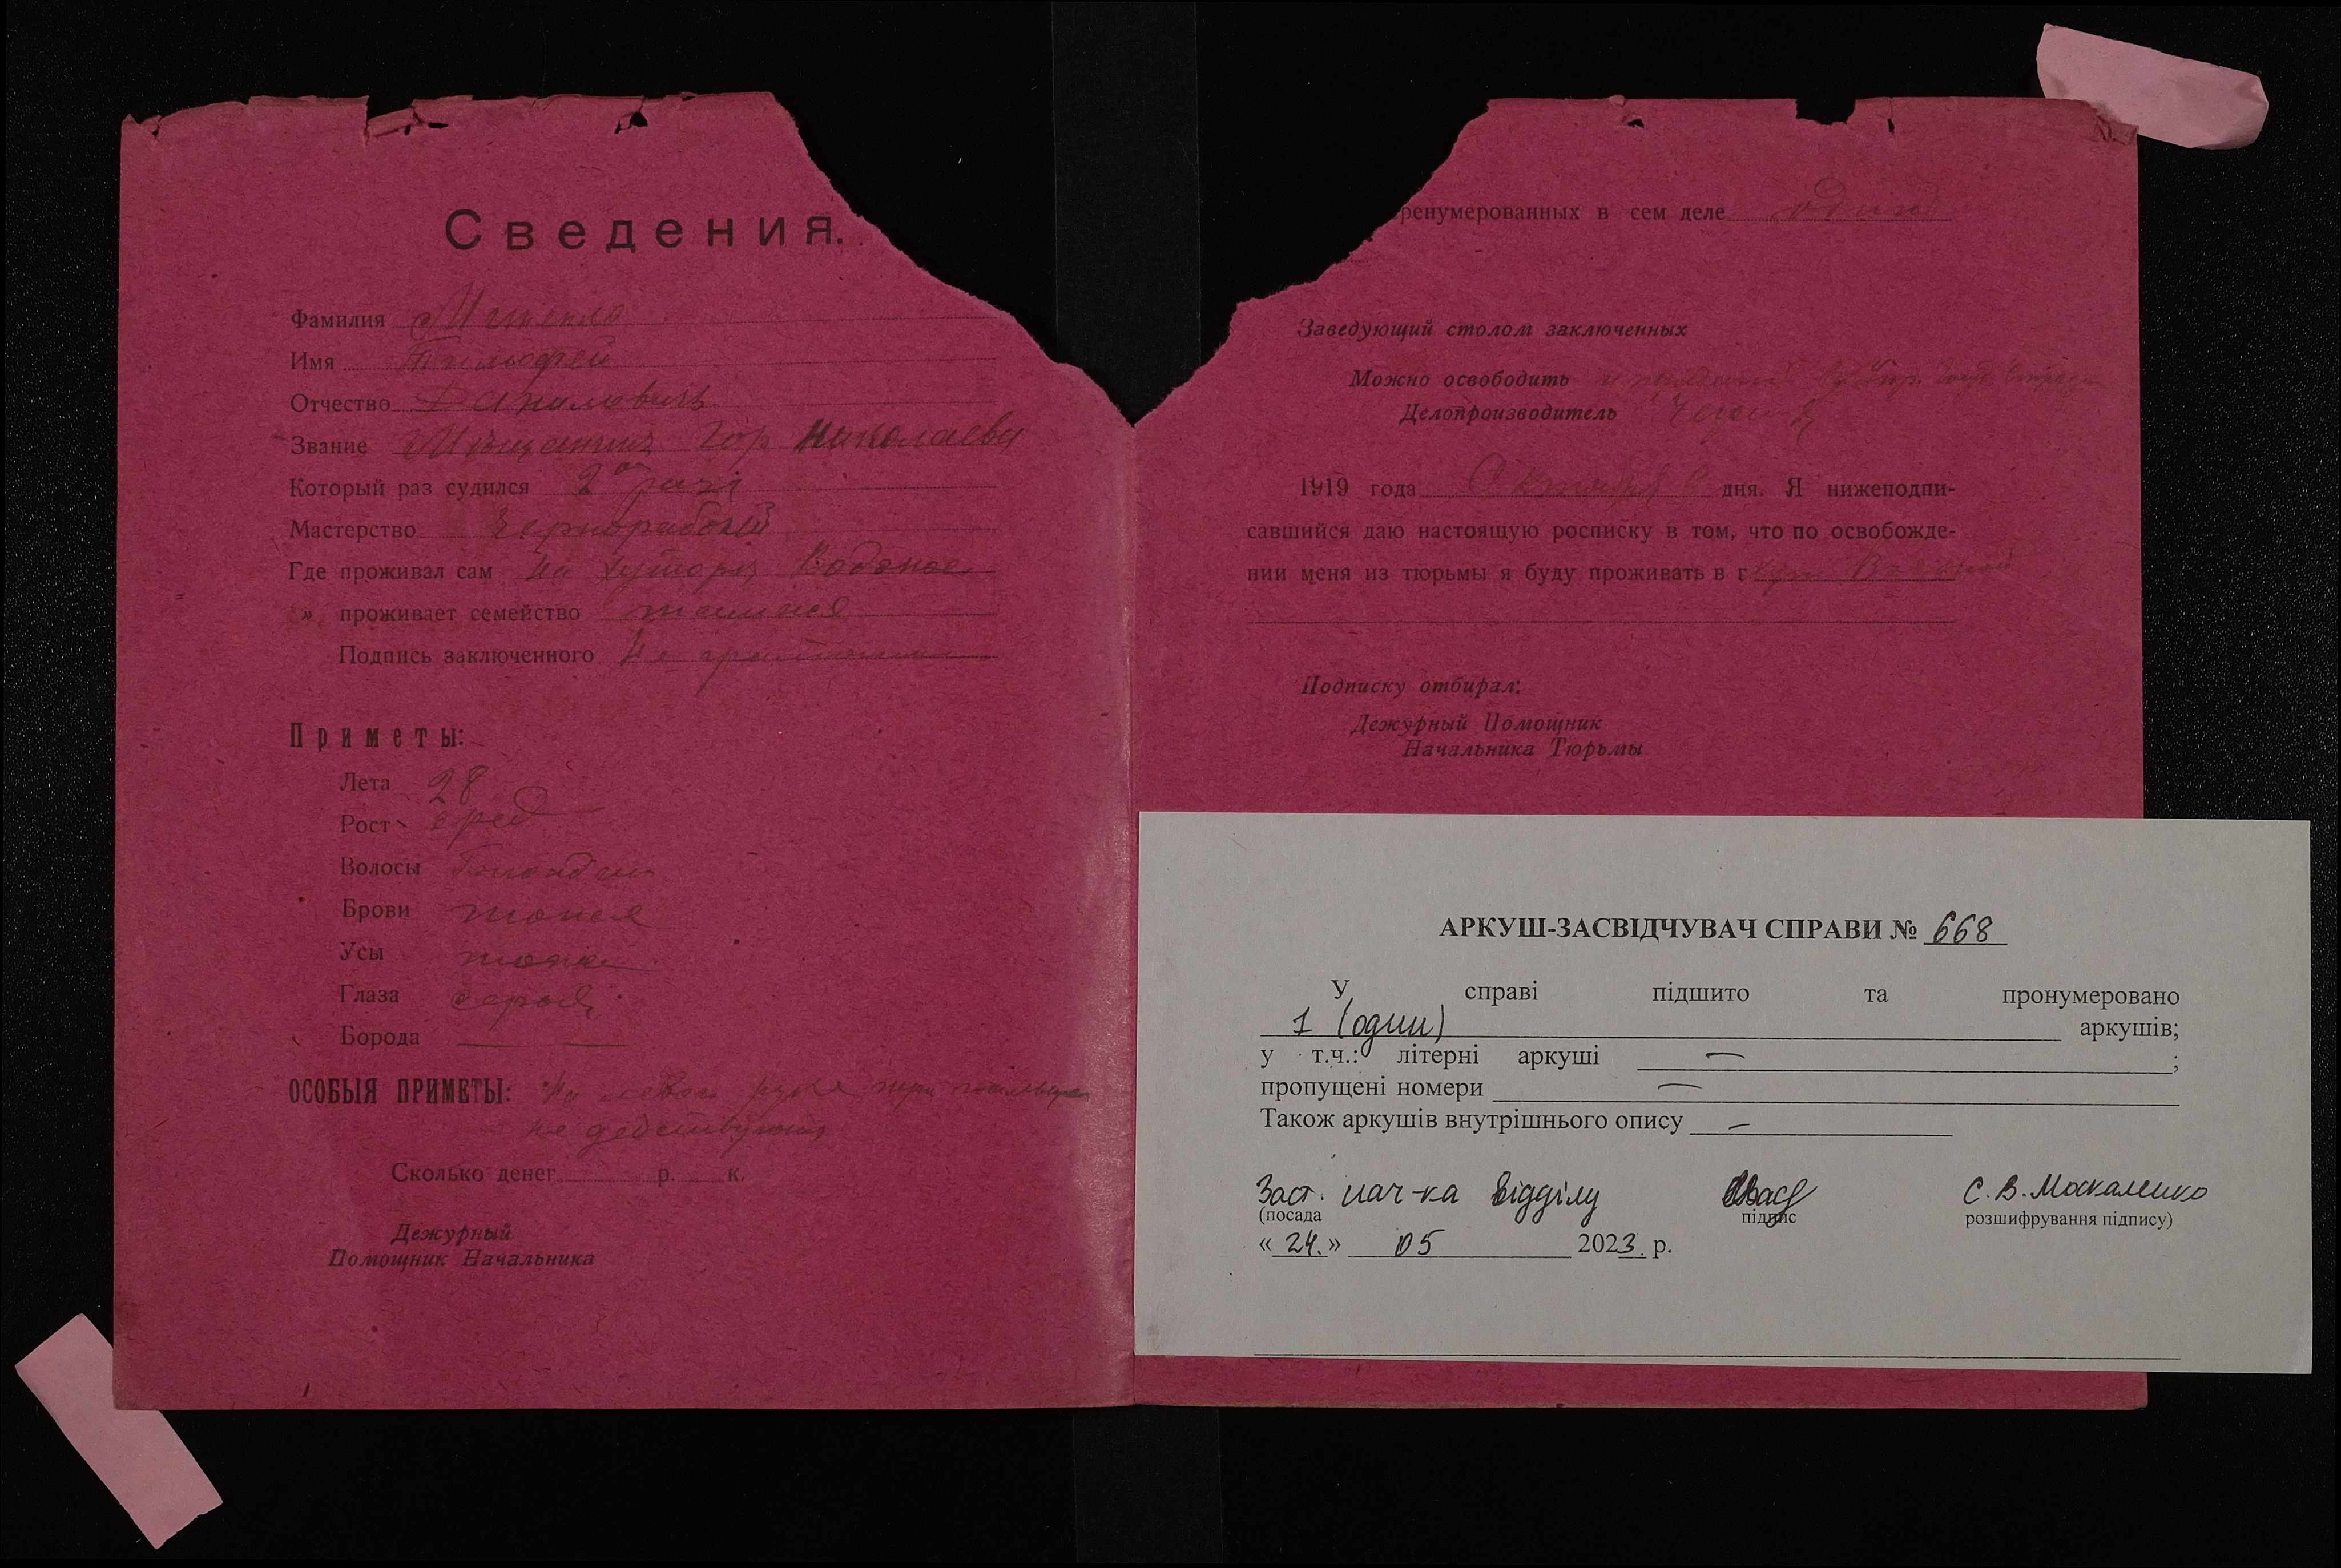 Сведения.
Фамилия
Имя Тимофей
Отчество Даниловичъ
Звание Мѣщанинъ гор Николаева
Который раз судился 2й разъ
Мастерство Чернорабочій
Где проживал сам На хуторѣ Водоное
» проживает семейство тоже
Подпись заключенного Не грамотный
Приметы:
Лета 28
Рост сред
Волосы Блондин
Брови тоже
Усы тоже
Глаза серые
Борода
ОСОБЫЯ ПРИМЕТЫ: На левой руке три пальца
не действуют
Сколько денег р. к.
Дежурный
Помощник Начальника
ренумерованных в сем деле один
Заведующий столом заключенных
Можно освободить
Делопроизводитель
1919 года Октября дня. Я нижеподпи-
савшийся даю настоящую росписку в том, что по освобожде-
нии меня из тюрьмы я буду проживать в г
Подписку отбирал:
Дежурный Помощник
Начальника Тюрьмы
АРКУШ-ЗАСВІДЧУВАЧ СПРАВИ № 668
У справі підшито та пронумеровано
1 (один) аркушів;
у т.ч.: літерні аркуші — ;
пропущені номери —
Також аркушів внутрішнього опису —
Заст. нач-ка відділу С.В. Москаленко
(посада підпис розшифрування підпису)
« 24. » 05 2023. р.